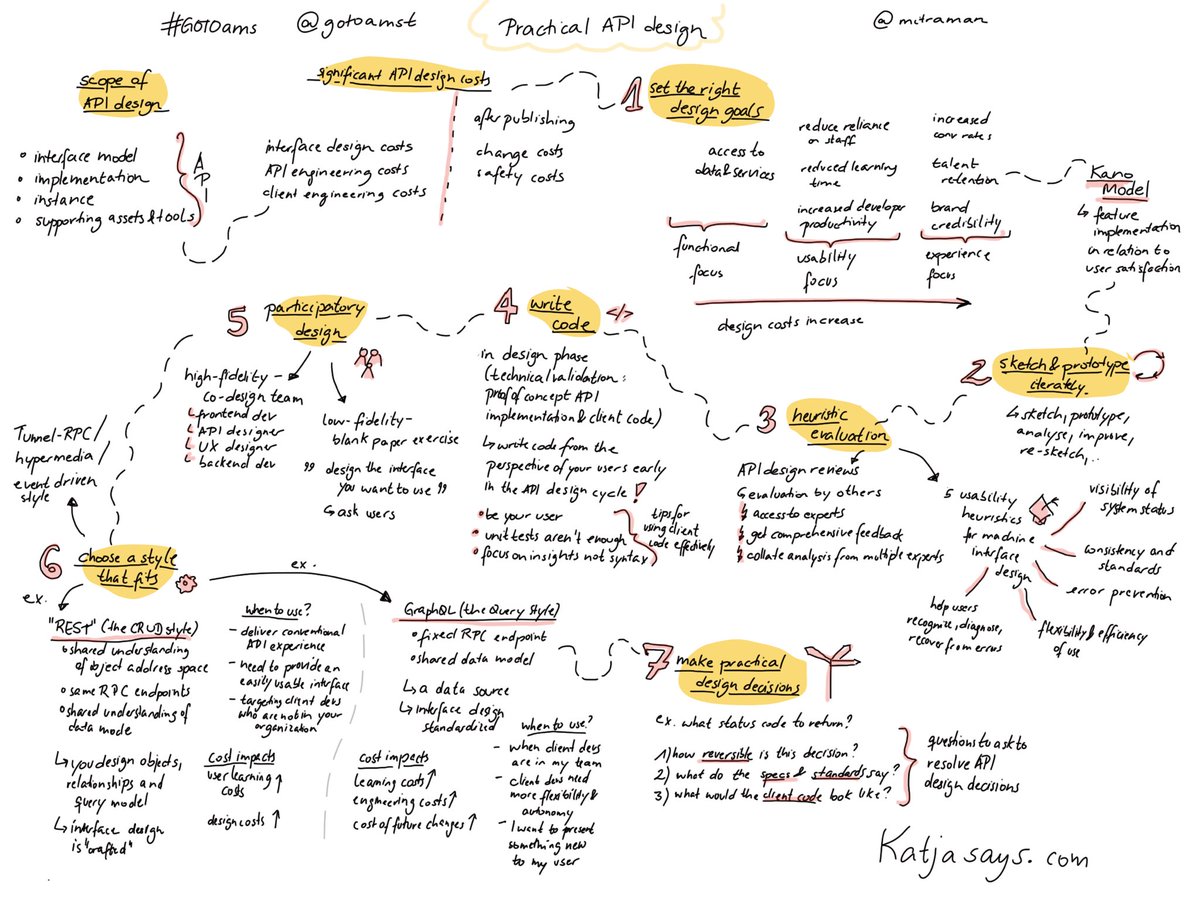 #GOTOams
@gotoamst
Practical API design
@mitraman
scope of
API design
• interface model
• implementation
• instance
• supporting assets & tools
API
significant API design costs
interface design costs
API engineering costs
client engineering costs
after publishing
change costs
safety costs
1 set the right
design goals
access to
data & services
functional
focus
reduce reliance
on staff
reduced learning
time
increased developer
productivity
usability
focus
increased
conv rates
talent
retention
brand
credibility
experience
focus
design costs increase
Kano
Model
↳ feature
implementation
in relation to
user satisfaction
2 sketch & prototype
iterately.
↳ sketch, prototype,
analyse, improve,
re-sketch,..
3 heuristic
evaluation
API design reviews
↳ evaluation by others
access to experts
get comprehensive feedback
collate analysis from multiple experts
5 usability
heuristics
for machine
interface
design
visibility of
system status
consistency and
standards
error prevention
flexibility & efficiency
of use
help users
recognize, diagnose,
recover from errors
4 write
code
</>
in design phase
(technical validation:
proof of concept API
implementation & client code)
↳ write code from the
perspective of your users early
in the API design cycle !
• be your user
• unit tests aren't enough
• focus on insights not syntax
tips for
using client
code effectively
5 participatory
design
high-fidelity –
co-design team
↳ frontend dev
↳ API designer
↳ UX designer
↳ backend dev
low-fidelity –
blank paper exercise
" design the interface
you want to use "
↳ ask users
6 choose a style
that fits
Tunnel-RPC/
hypermedia/
event driven
style
ex.
"REST" (the CRUD style)
• shared understanding
of object address space
• same RPC endpoints
• shared understanding of
data mode
↳ you design objects,
relationships and
query model
↳ interface design
is "crafted"
when to use?
– deliver conventional
API experience
– need to provide an
easily usable interface
– targeting client devs
who are not in your
organization
cost impacts
user learning ↑
costs
design costs ↑
ex.
GraphQL (the Query style)
• fixed RPC endpoint
• shared data model
↳ a data source
↳ interface design
standardized
cost impacts
learning costs ↑
engineering costs ↑
cost of future changes ↑
when to use?
– when client devs
are in my team
– client devs need
more flexibility &
autonomy
– I want to present
something new
to my user
7 make practical
design decisions
ex. what status code to return?
1) how reversible is this decision?
2) what do the specs & standards say?
3) what would the client code look like?
questions to ask to
resolve API
design decisions
Katjasays.com